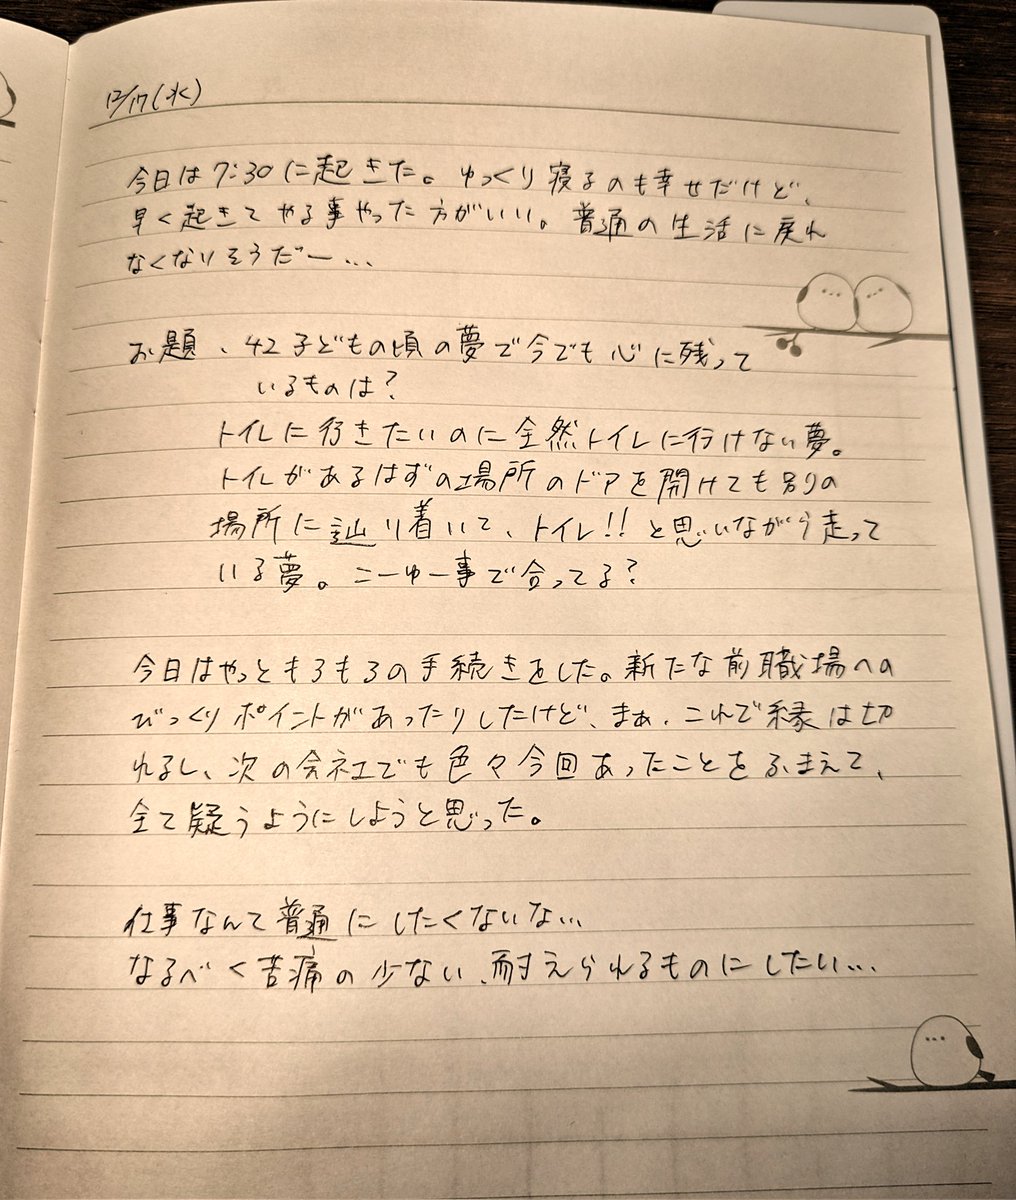 12/17(水)
今日は7:30に起きた。ゆっくり寝るのも幸せだけど、
早く起きてやる事やった方がいい。普通の生活に戻れ
なくなりそうだー…
お題、42 子どもの頃の夢で今でも心に残って
いるものは?
トイレに行きたいのに全然トイレに行けない夢。
トイレがあるはずの場所のドアを開けても別の
場所に辿り着いて、トイレ!!と思いながら走って
いる夢。こーゆー事で合ってる?
今日はやっともろもろの手続きをした。新たな前職場への
びっくりポイントがあったりしたけど、まぁ、これで縁は切
れるし、次の会社でも色々今回あったことをふまえて、
全て疑うようにしようと思った。
仕事なんて普通にしたくないな…
なるべく苦痛の少ない、耐えられるものにしたい…